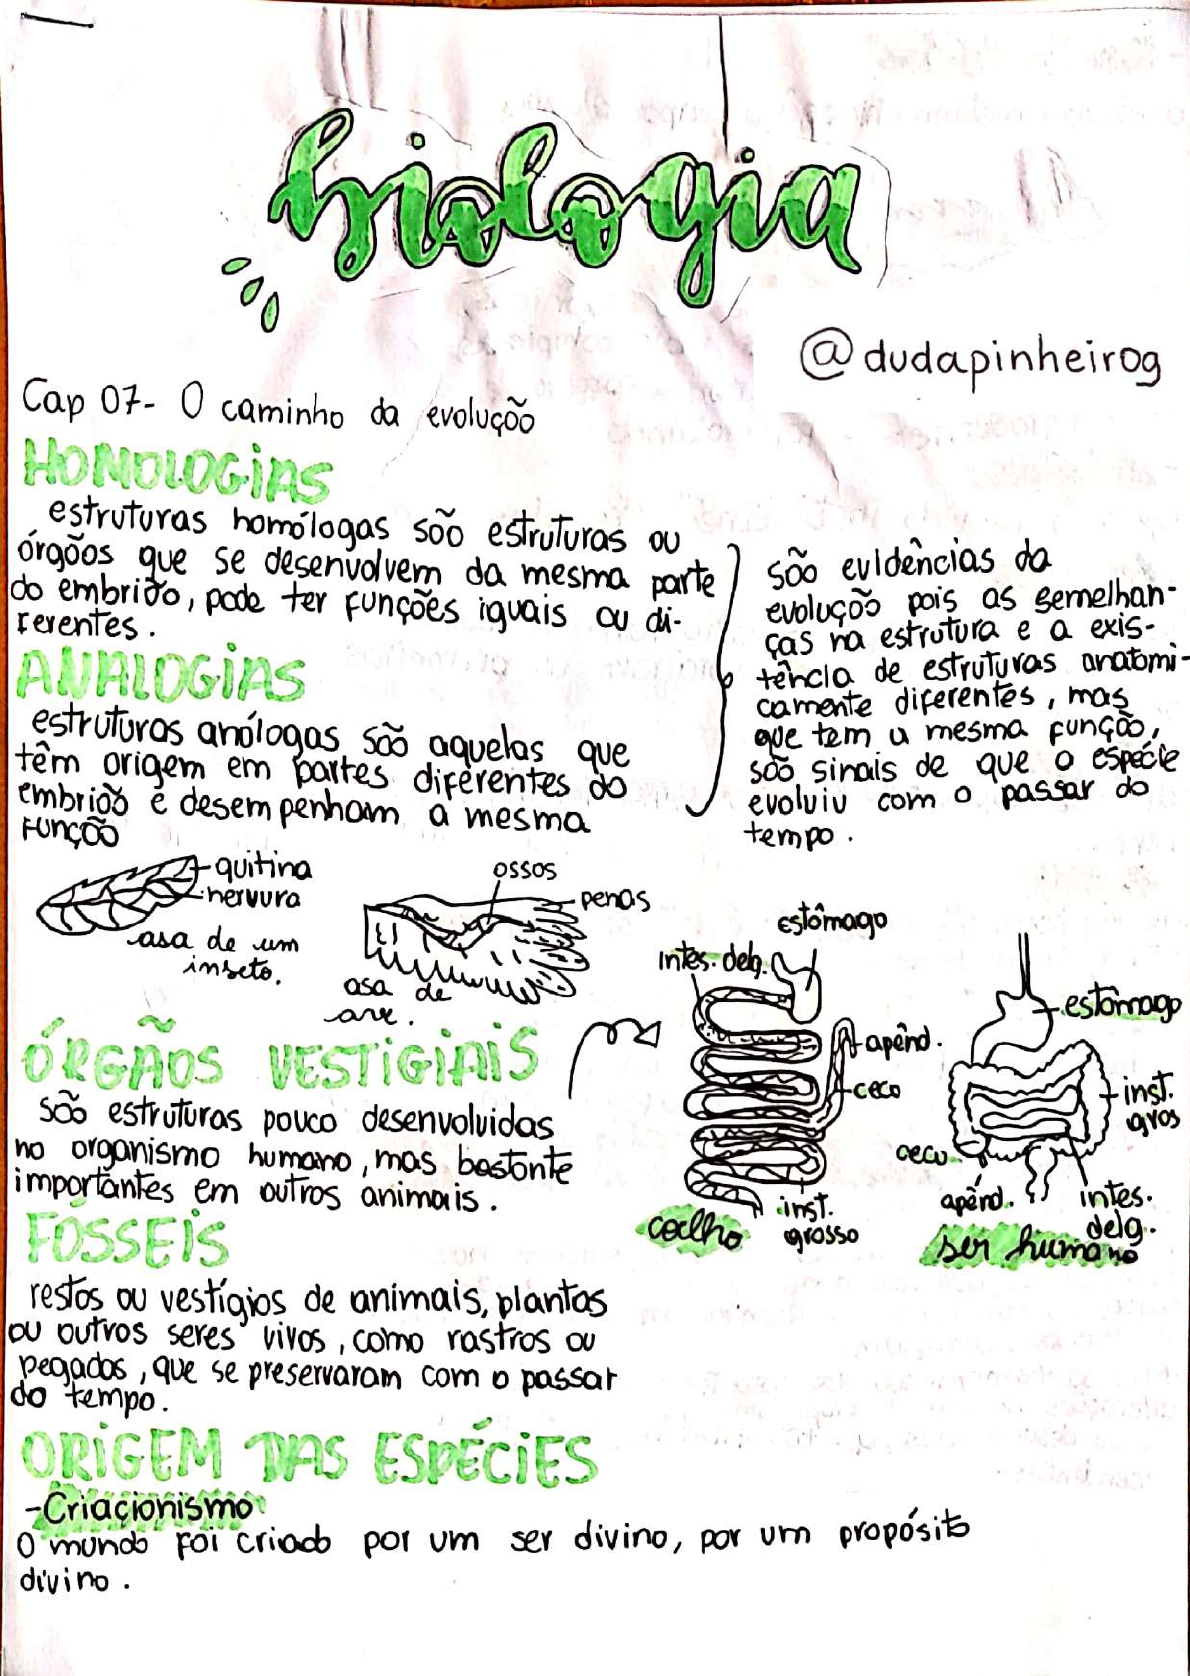 biologia
@dudapinheirog
Cap 07- O caminho da evolução
HOMOLOGIAS
estruturas homólogas são estruturas ou
órgãos que se desenvolvem da mesma parte
do embrião, pode ter funções iguais ou di-
ferentes.
ANALOGIAS
estruturas análogas são aquelas que
têm origem em partes diferentes do
embrião e desempenham a mesma
função
são evidências da
evolução pois as semelhan-
ças na estrutura e a exis-
tência de estruturas anatomi-
camente diferentes, mas
que tem a mesma função,
são sinais de que a espécie
evoluiu com o passar do
tempo.
quitina
nervura
asa de um
inseto.
ossos
penas
asa de
ave.
estômago
intes. delg.
apênd.
ceco
inst.
grosso
coelho
estômago
inst.
gros
cecu
apênd.
intes.
delg.
ser humano
ÓRGÃOS VESTIGIAIS
são estruturas pouco desenvolvidas
no organismo humano, mas bastante
importantes em outros animais.
FÓSSEIS
restos ou vestígios de animais, plantas
ou outros seres vivos, como rastros ou
pegadas, que se preservaram com o passar
do tempo.
ORIGEM DAS ESPÉCIES
-Criacionismo
O mundo foi criado por um ser divino, por um propósito
divino.